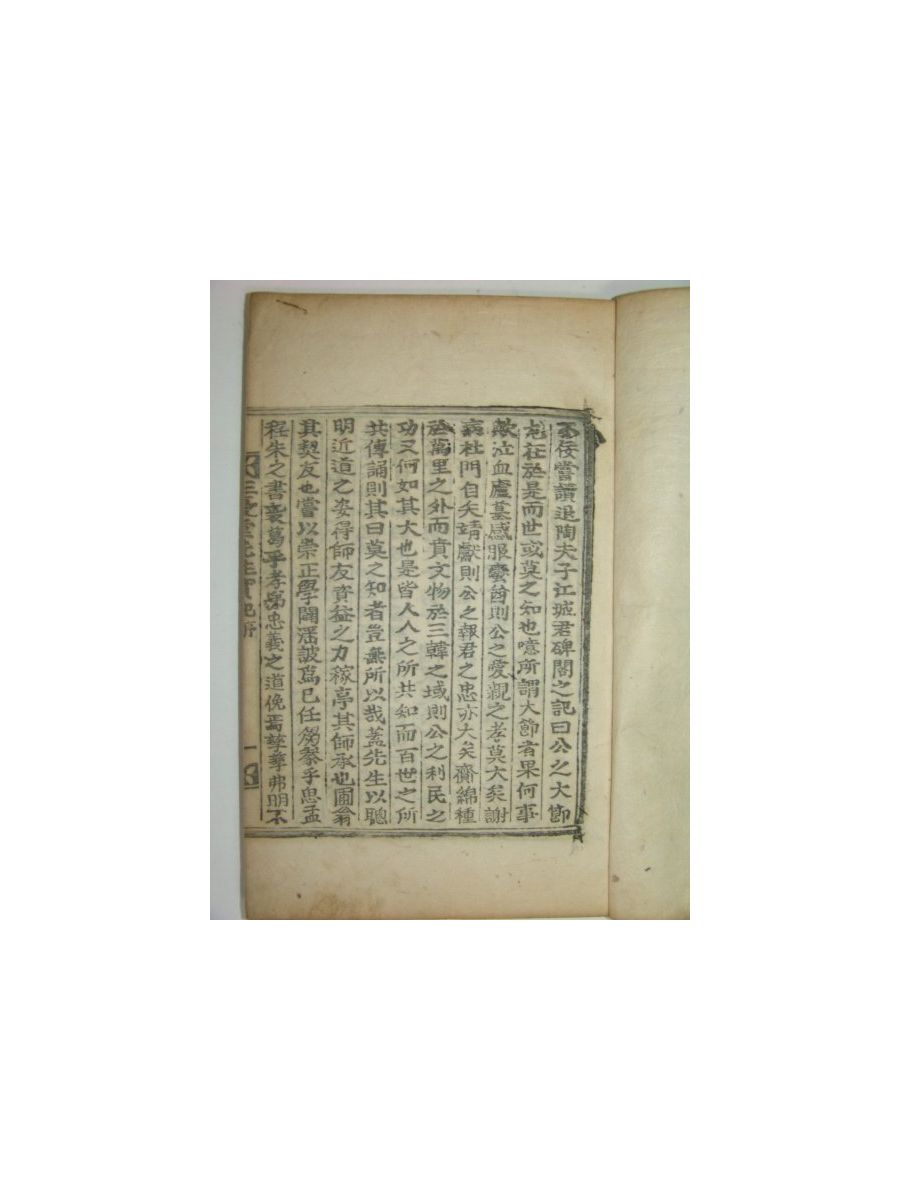 不佞嘗讀退陶夫子江城君碑閣之記曰公之大節
尤在於是而世或莫之知也噫所謂大節者果何事
歟泣血廬墓感服蠻酋則公之愛親之孝莫大矣謝
病杜門自矢靖獻則公之報君之忠亦大矣齎綿種
於萬里之外而賁文物於三韓之域則公之利民之
功又何如其大也是皆人人之所共知而百世之所
共傳誦則其曰莫之知者豈無所以哉盖先生以聰
明近道之姿得師友資益之力稼亭其師承也圃翁
其契友也嘗以崇正學闢淫詖爲已任芻豢乎思孟
程朱之書裘葛乎孝弟忠義之道俛焉孶孶弗明不
三憂堂先生實記序 一